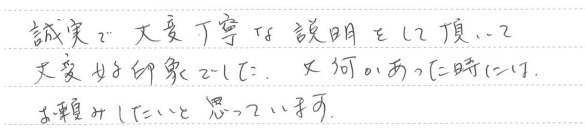 誠実で大変丁寧な説明をして頂いて
大変好印象でした。又何かあった時には、
お願みしたいと思っています。